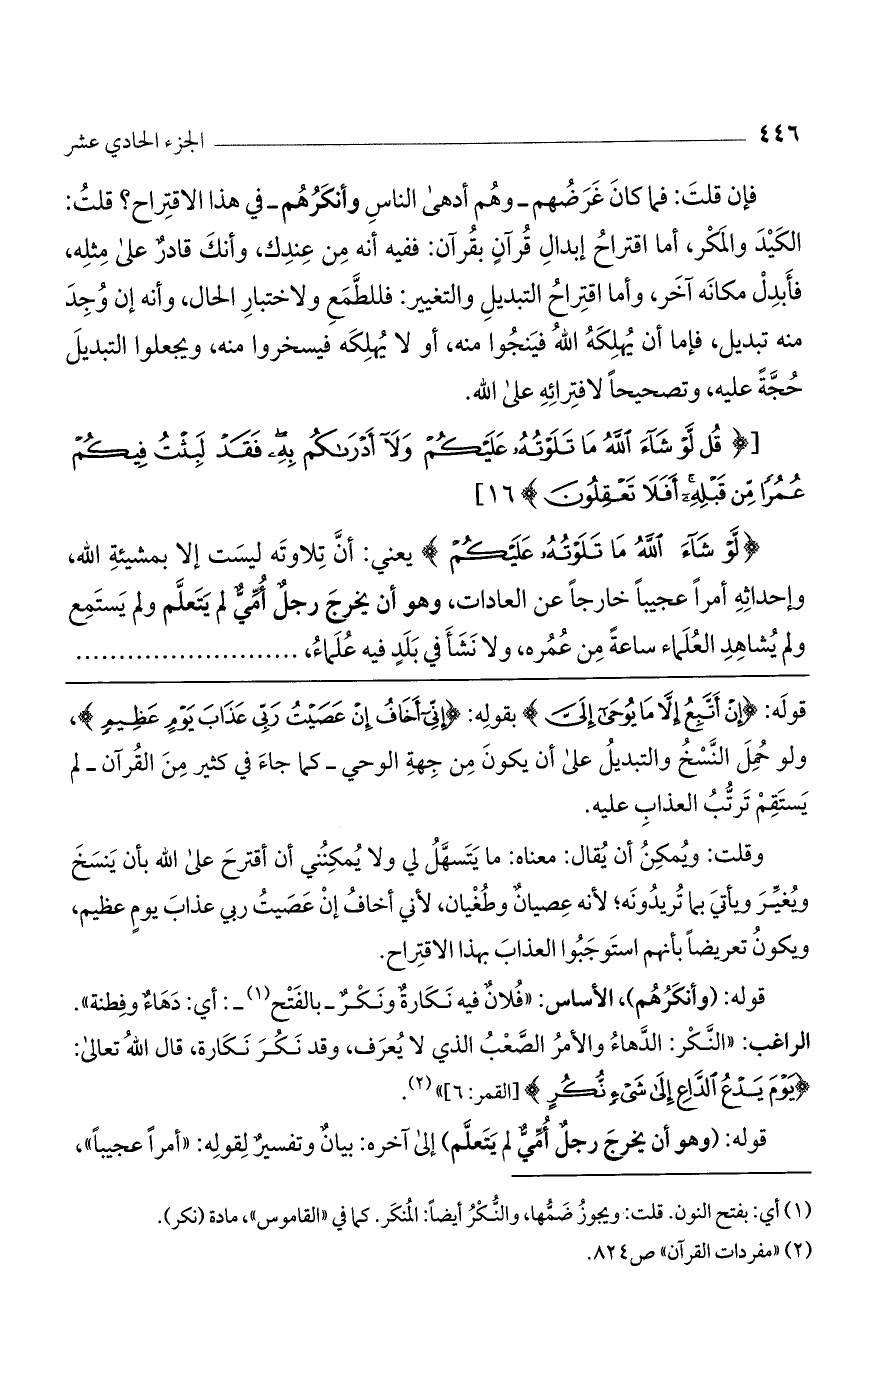 ٤٤٦ ــــــــــــــــــــــــــــــــــــ الجزء الحادي عشر
فإن قلتَ: فما كانَ غَرَضُهم ـ وهُم أدهىٰ الناسِ وأنكَرُهُم ـ في هذا الاقتِراح؟ قلتُ:
الكَيْدَ والمَكْر، أما اقتراحُ إبدالِ قُرآنٍ بقُرآن: ففيه أنه مِن عِندِك، وأنكَ قادرٌ علىٰ مِثلِه،
فأَبدِلْ مكانَه آخَر، وأما اقتِراحُ التبديلِ والتغيير: فللطَّمَعِ ولاختبارِ الحال، وأنه إن وُجِدَ
منه تبديل، فإما أن يُهلِكَهُ اللهُ فيَنجُوا منه، أو لا يُهلِكَه فيسخروا منه، ويجعلوا التبديلَ
حُجَّةً عليه، وتصحيحاً لافتِرائِهِ علىٰ الله.
[﴿ قُل لَّوْ شَآءَ ٱللَّهُ مَا تَلَوْتُهُۥ عَلَيْكُمْ وَلَآ أَدْرَىٰكُم بِهِۦ ۖ فَقَدْ لَبِثْتُ فِيكُمْ
عُمُرًا مِّن قَبْلِهِۦٓ ۚ أَفَلَا تَعْقِلُونَ ﴾ ١٦]
﴿لَّوْ شَآءَ ٱللَّهُ مَا تَلَوْتُهُۥ عَلَيْكُمْ ﴾ يعني: أنَّ تِلاوتَه ليسَت إلا بمشيئةِ الله،
وإحداثِهِ أمراً عجيباً خارجاً عن العادات، وهو أن يَخرجَ رجلٌ أُمِّيٌّ لم يَتَعلَّم ولم يَستَمِع
ولم يُشاهِدِ العُلَماء ساعةً مِن عُمُره، ولا نَشَأَ في بَلَدٍ فيه عُلَماءُ، ..........................
قولَه: ﴿إِنْ أَتَّبِعُ إِلَّا مَا يُوحَىٰٓ إِلَىَّ ﴾ بقولِه: ﴿إِنِّىٓ أَخَافُ إِنْ عَصَيْتُ رَبِّى عَذَابَ يَوْمٍ عَظِيمٍ ﴾،
ولو حُمِلَ النَّسْخُ والتبديلُ علىٰ أن يكونَ مِن جِهةِ الوحي ـ كما جاءَ في كثير مِنَ القُرآن ـ لم
يَستَقِمْ تَرتُّبُ العذابِ عليه.
وقلت: ويُمكِنُ أن يُقال: معناه: ما يَتَسهَّلُ لي ولا يُمكِنُني أن أقترحَ علىٰ الله بأن يَنسَخَ
ويُغيِّرَ ويأتيَ بما تُريدُونَه؛ لأنه عِصيانٌ وطُغْيان، لأني أخافُ إنْ عَصَيتُ ربي عذابَ يومٍ عظيم،
ويكونُ تعريضاً بأنهم استَوجَبُوا العذابَ بهذا الاقتِراح.
قوله: (وأنكَرُهُم)، الأساس: «فُلانٌ فيه نَكَارةٌ ونَكْرٌ ـ بالفَتْح(١) ـ: أي: دَهَاءٌ وفِطنة».
الراغب: «النَّكْر: الدَّهاءُ والأمرُ الصَّعْبُ الذي لا يُعرَف، وقد نَكُرَ نَكَارة، قال اللهُ تعالىٰ:
﴿يَوْمَ يَدْعُ ٱلدَّاعِ إِلَىٰ شَىْءٍ نُّكُرٍ ﴾ [القمر: ٦]»(٢).
قوله: (وهو أن يَخرجَ رجلٌ أُمِّيٌّ لم يَتَعلَّم) إلىٰ آخره: بيانٌ وتفسيرٌ لِقولِه: «أمراً عجيباً»،
(١) أي: بفتح النون. قلت: ويجوزُ ضَمُّها، والنُّكْرُ أيضاً: المُنكَر. كما في «القاموس»، مادة (نكر).
(٢) «مفردات القرآن» ص٨٢٤.